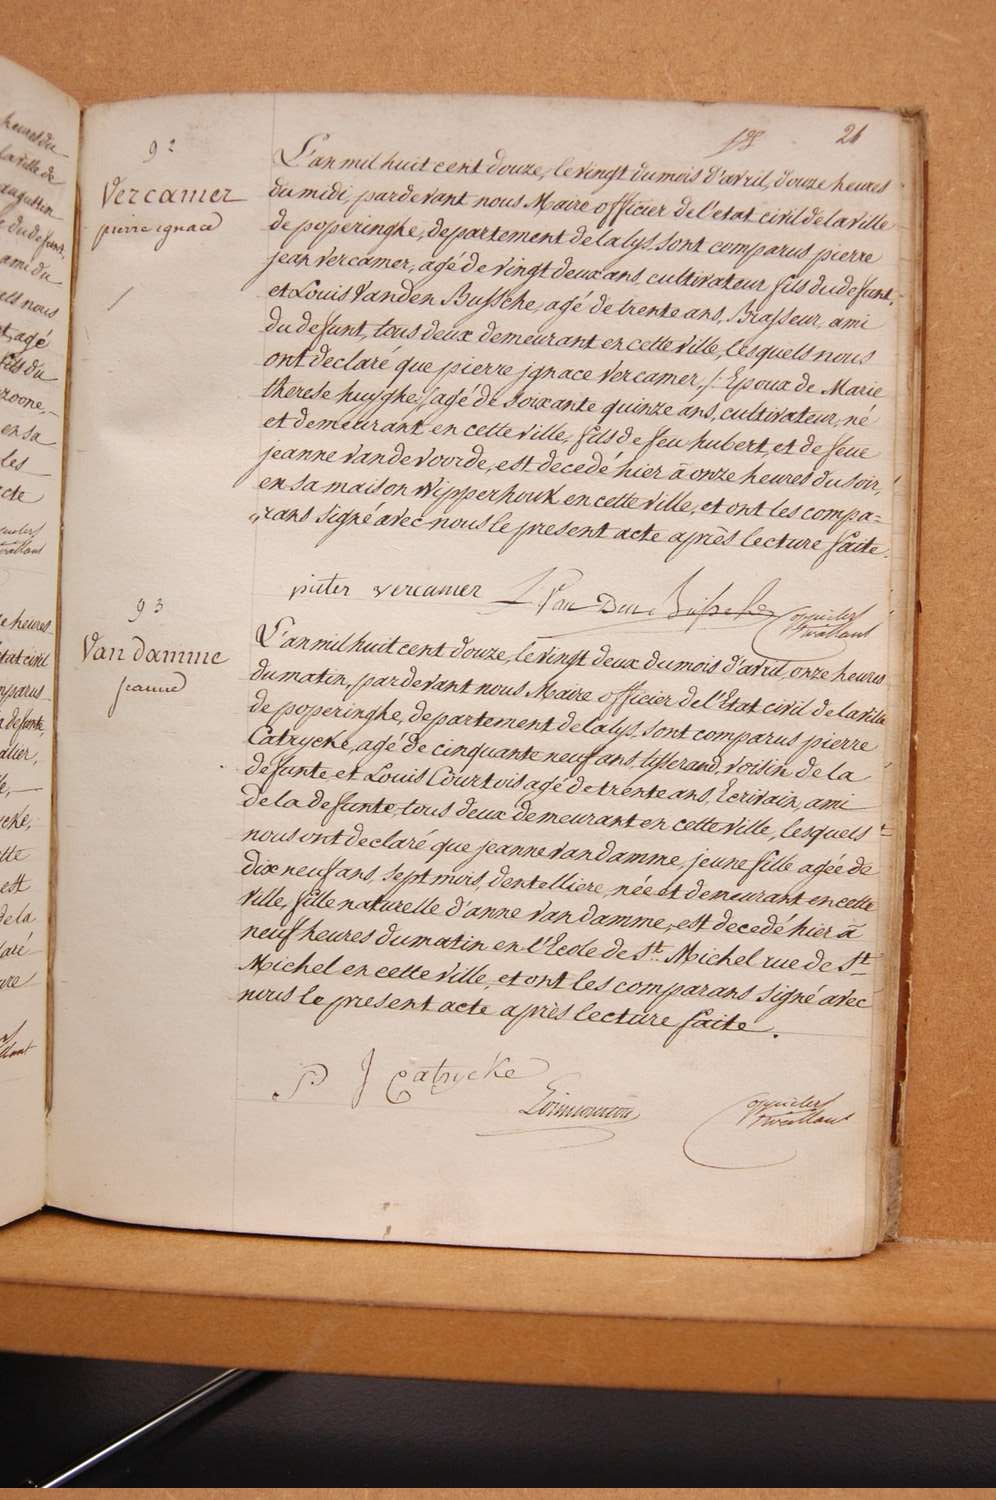 21
92
Vercamer
pierre ignace
L'an mil huit cent douze, le vingt du mois d'avril, douze heures
du midi, pardevant nous Maire officier de l'etat civil de la ville
de poperinghe, departement de la lys, sont comparus pierre
jean vercamer, agé de vingt deux ans, cultivateur fils du defunt,
et Louis Vanden Bussche, agé de trente ans, Brasseur, ami
du defunt, tous deux demeurant en cette ville, lesquels nous
ont declaré que pierre jgnace vercamer, /: Epoux de Marie
therese huyghe :/ agé de soixante quinze ans, cultivateur, né
et demeurant en cette ville, fils de feu hubert, et de feue
jeanne vandevoorde, est decedé hier à onze heures du soir,
en sa maison Wipperhouk en cette ville, et ont les compa=
rans signé avec nous le present acte après lecture faite.
pieter vercamer L Van Den Bussche
93
Van damme
jeanne
L'an mil huit cent douze, le vingt deux du mois d'avril, onze heures
du matin, pardevant nous Maire officier de l'Etat civil de la ville
de poperinghe, departement de la lys, sont comparus pierre
Catrycke, agé de cinquante neuf ans, tisserand, voisin de la
defunte et Louis Courtois agé de trente ans, Ecrivain, ami
de la defunte, tous deux demeurant en cette ville, lesquels
nous ont declaré que jeanne vandamme, jeune fille agée de
dix neuf ans, sept mois, dentelliere, née et demeurant en cette
ville, fille naturelle d'anne vandamme, est decedé hier à
neuf heures du matin en l'Ecole de St. Michel rue de St.
Michel en cette ville, et ont les comparans signé avec
nous le present acte après lecture faite.
P J Catrycke